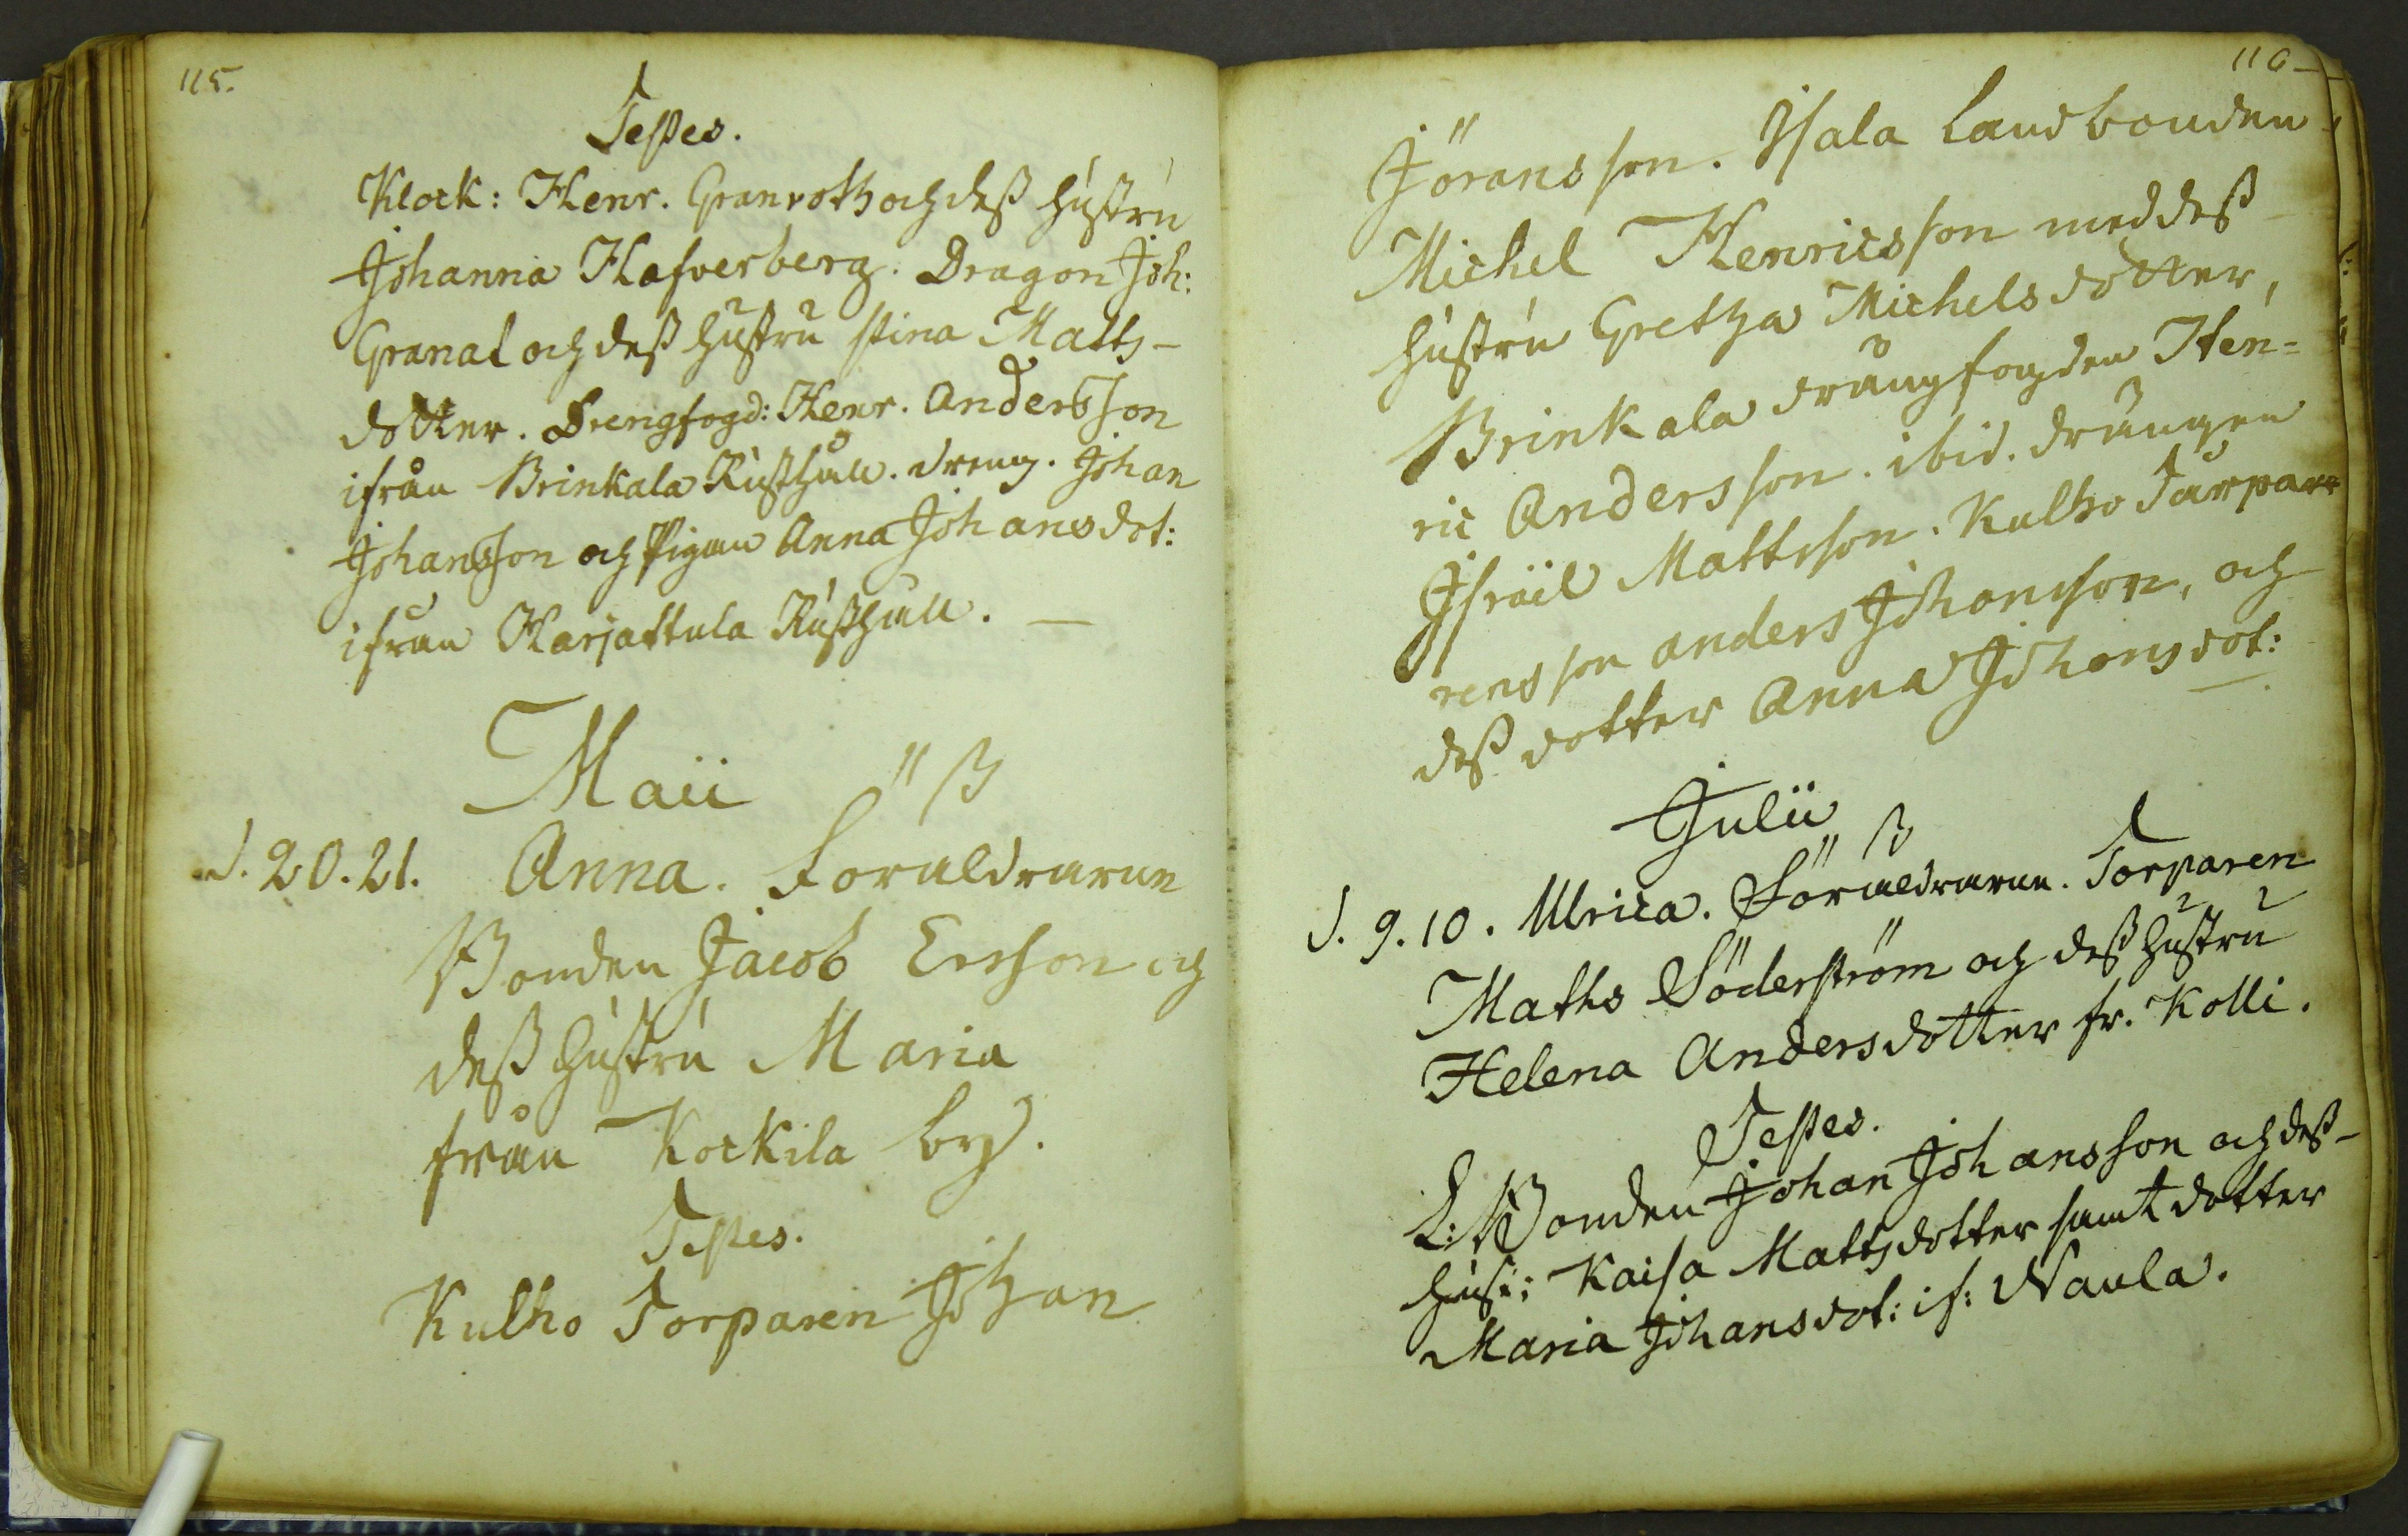 115.
Testes.
Klock: Henr. Granroth och deß hustru
Johanna Hafverberg. Dragon Joh:
Granat och deß hustru stina Matts-
dotter. Drengfogd: Henr. Andersson
ifrån Brinkala Rusthåll. dreng. Johan
Johansson och Pigan Anna Johansdot:
ifrån Karjattula Rusthåll. —
Maii
d. 20. 21. Anna. Föräldrarne
Bonden Jacob Ersson och
deß hustru Maria
från Kockila by.
Testes.
Kulho Torparen Johan
116
Jöransson. Isala Landbonden
Michel Henricsson med deß
hustru Gretha Michelsdotter,
Brinkala drängfogden Hen=
ric Andersson. ibid. drängen
Israël Mattsson. Kulho Torpar
rens son anders Johansson, och
deß dotter Anna Johansdot:
Julii
d. 9. 10. Ulrica. Föräldrarne. Torparen
Maths Söderström och deß hustru
Helena Andersdotter fr. Kolli.
Testes.
L: Bonden Johan Johansson och deß
hust: Kaisa Mattsdotter samt dotter
Maria Johansdot: if: Naula.